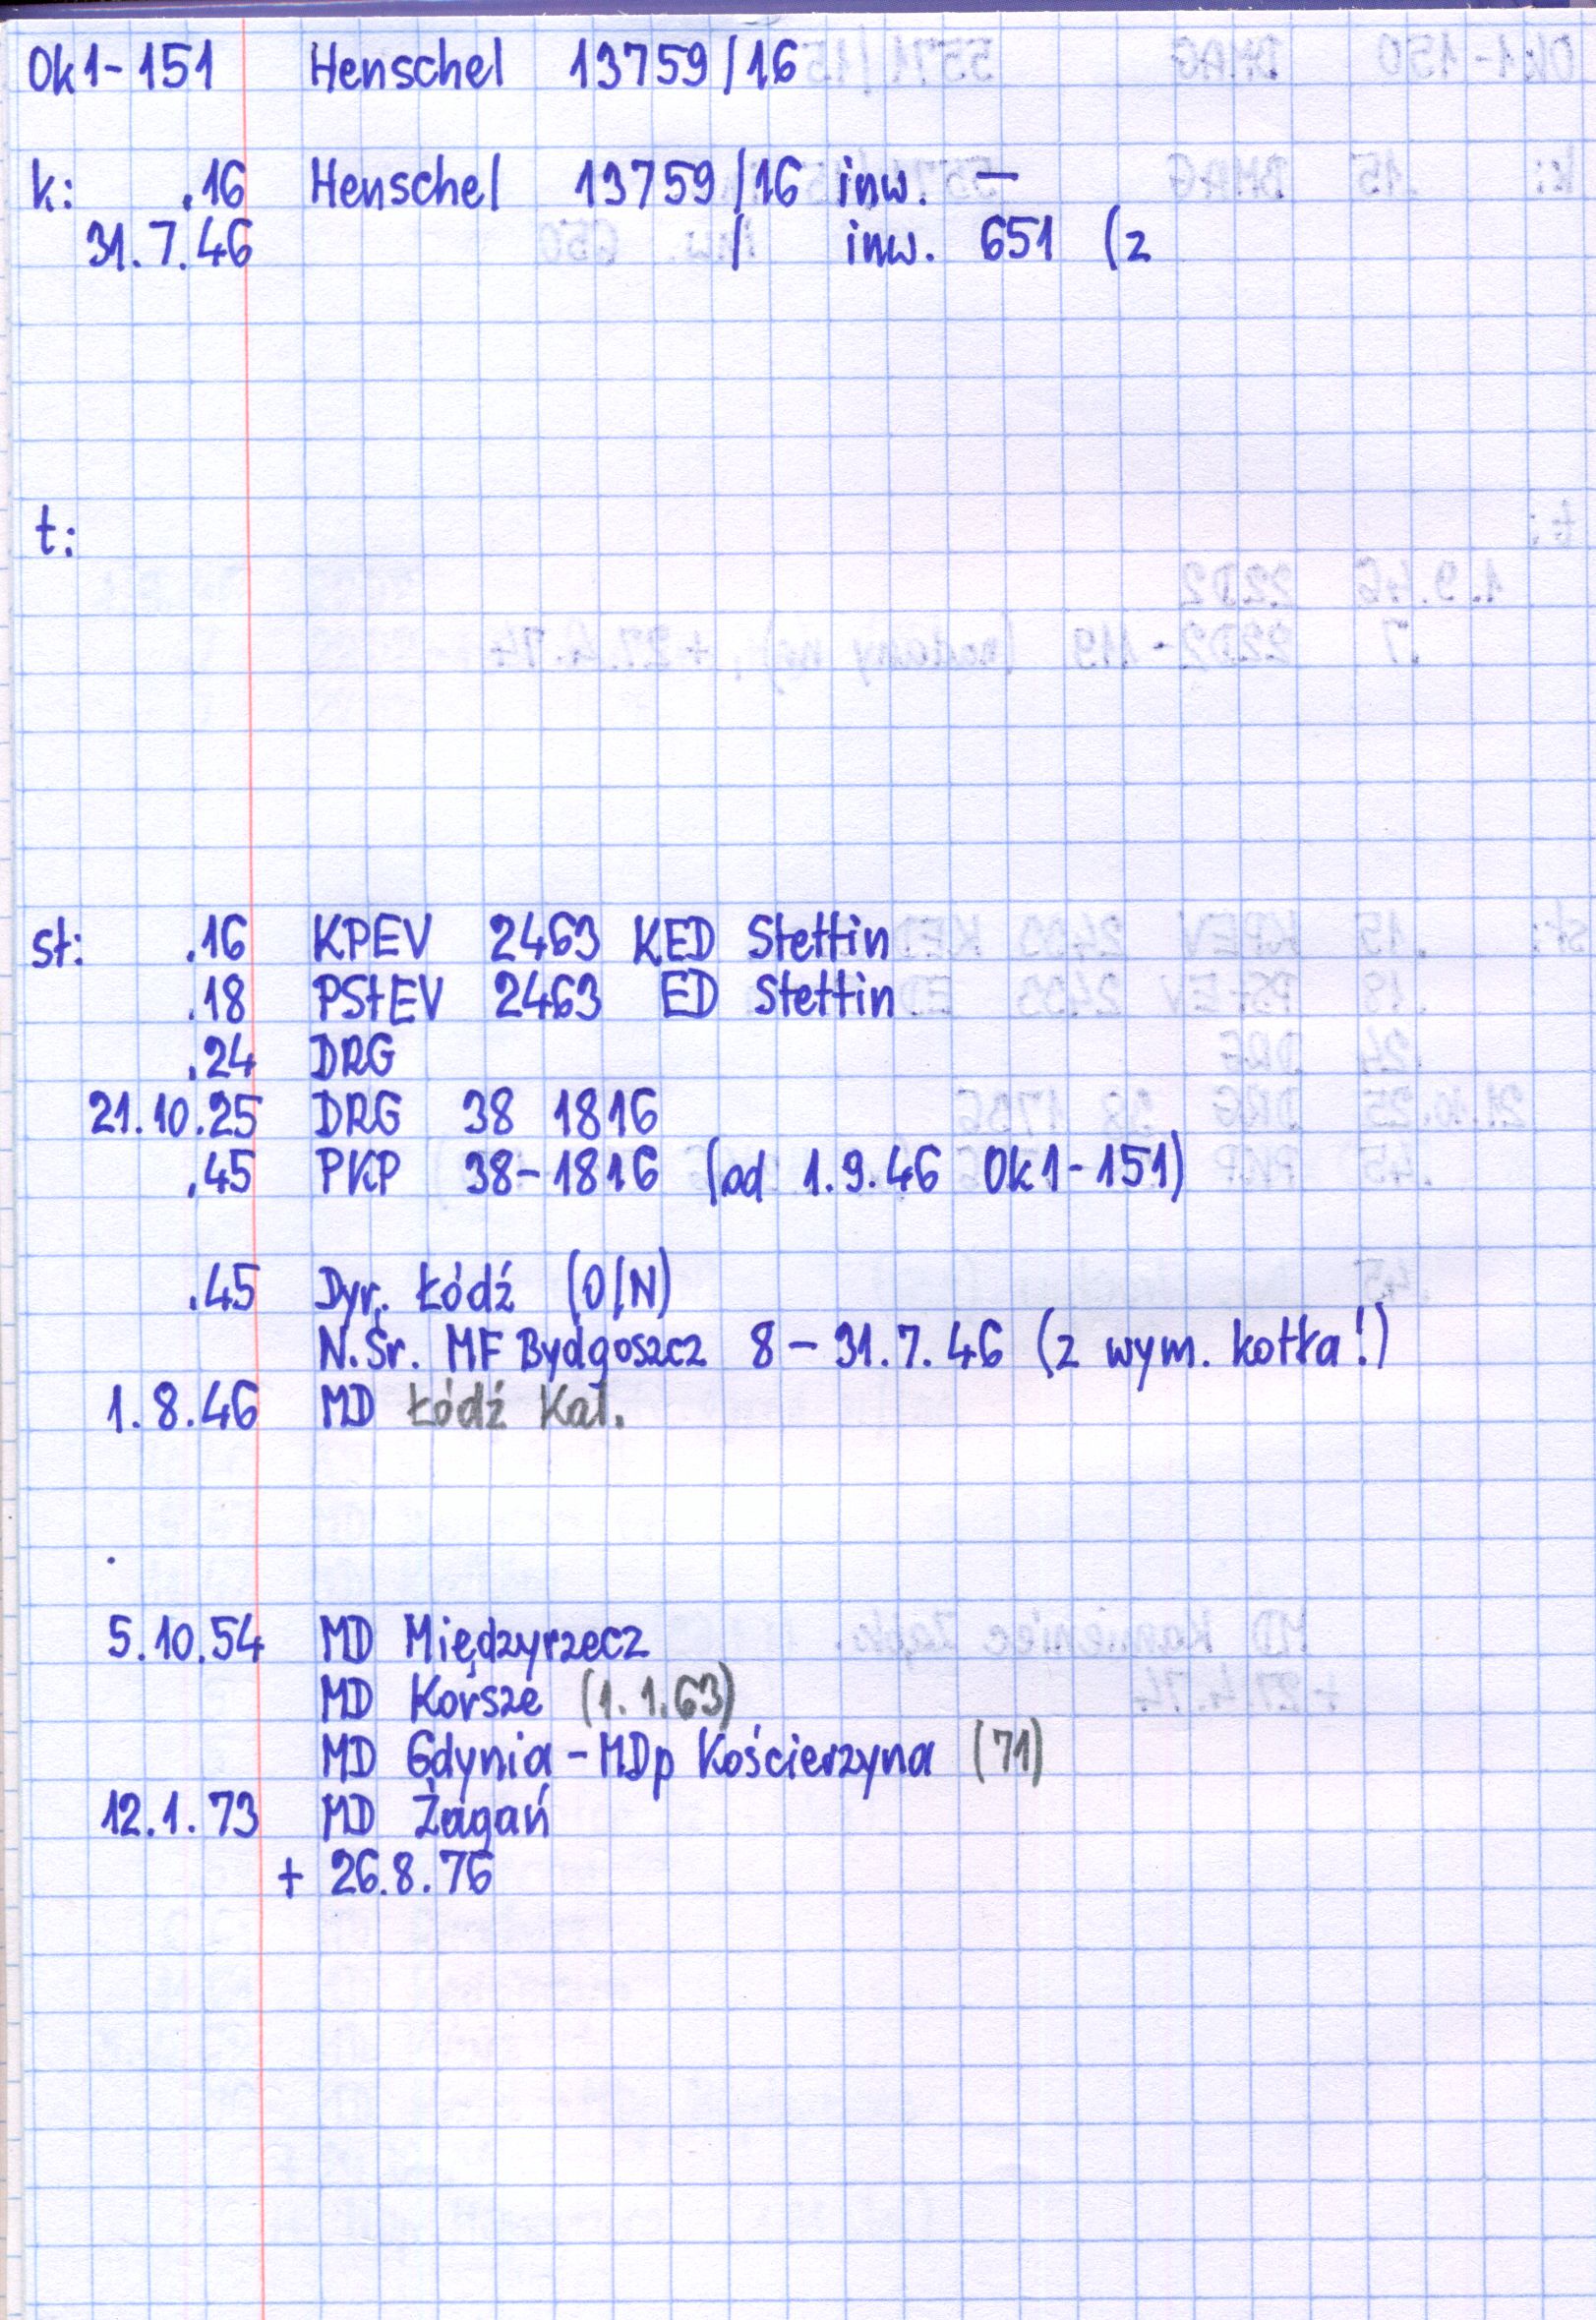 Ok1-151 Henschel 13759/16
k: .16 Henschel 13759/16 inw. —
31.7.46 / inw. 651 (z
t:
st: .16 KPEV 2463 KED Stettin
.18 PStEV 2463 ED Stettin
.24 DRG
21.10.25 DRG 38 1816
.45 PKP 38-1816 (od 1.9.46 Ok1-151)
.45 Dyr. Łódź (O/N)
N.Śr. MF Bydgoszcz 8 – 31.7.46 (z wym. kotła!)
1.8.46 MD Łódź Kal.
5.10.54 MD Międzyrzecz
MD Korsze (1.1.63)
MD Gdynia - MDp Kościerzyna (71)
12.1.73 MD Żagań
+ 26.8.76